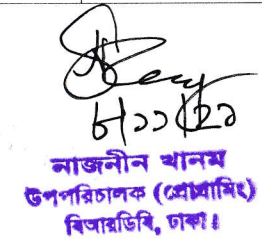 ৮।১১।২১
নাজনীন খানম
উপপরিচালক (প্রোগ্রামিং)
বিআরডিবি, ঢাকা।